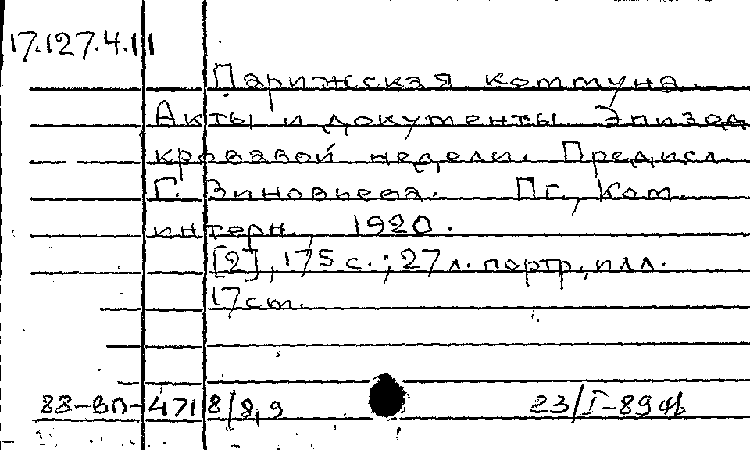 17.127.4.111
Парижская коммуна.
Акты и документы. Эпизод
кровавой недели. Предисл.
Г. Зиновьева. Пг., Ком.
интерн., 1920.
[2], 175 с.; 27 л. портр., илл.
17 cm.
88-вп-4718/8,9 23/I-89